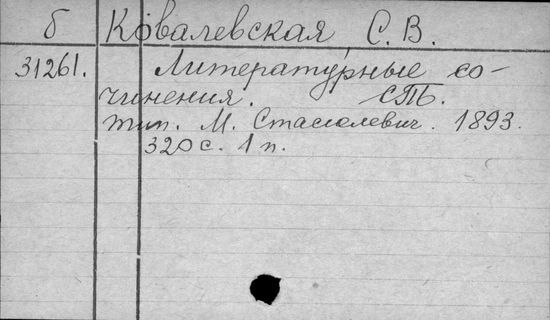 б Ковалевская, С. В.
31261. Литературные со-
чинения. СПБ.
тип. М. Стасюлевич. 1893.
320 с. 1 п.